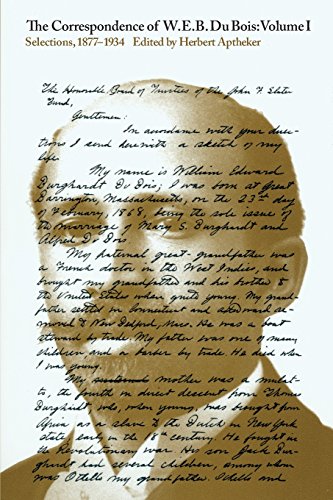 The Correspondence of W.E.B. Du Bois: Volume I
Selections, 1877–1934 Edited by Herbert Aptheker
The Honorable Board of Trustees of the John F. Slater
Fund,
Gentlemen:
In accordance with your direc-
tions I send herewith a sketch of my
life.
My name is William Edward
Burghardt Du Bois; I was born at Great
Barrington, Massachusetts, on the 23rd day
of February, 1868, being the sole issue of
the marriage of Mary S. Burghardt and
Alfred Du Bois
My paternal great-grandfather was
a French doctor in the West Indies, and
brought my grandfather and his brother to
the United States when quite young. My gran-
father settled in Connecticut and afterward re-
moved to New Bedford, Mass. He was a boat
steward by trade. My father was one of many
children, and a barber by trade. He died when
I was young.
My mother was a mulat-
to, the fourth in direct descent from Thomas
Burghardt who, when young, was brought from
Africa as a slave to the Dutch in New York
state early in the 18 century. He fought in
the Revolutionary war. His son Jack Bur-
ghardt had several children, among whom
was Othello my grandfather. Othello and